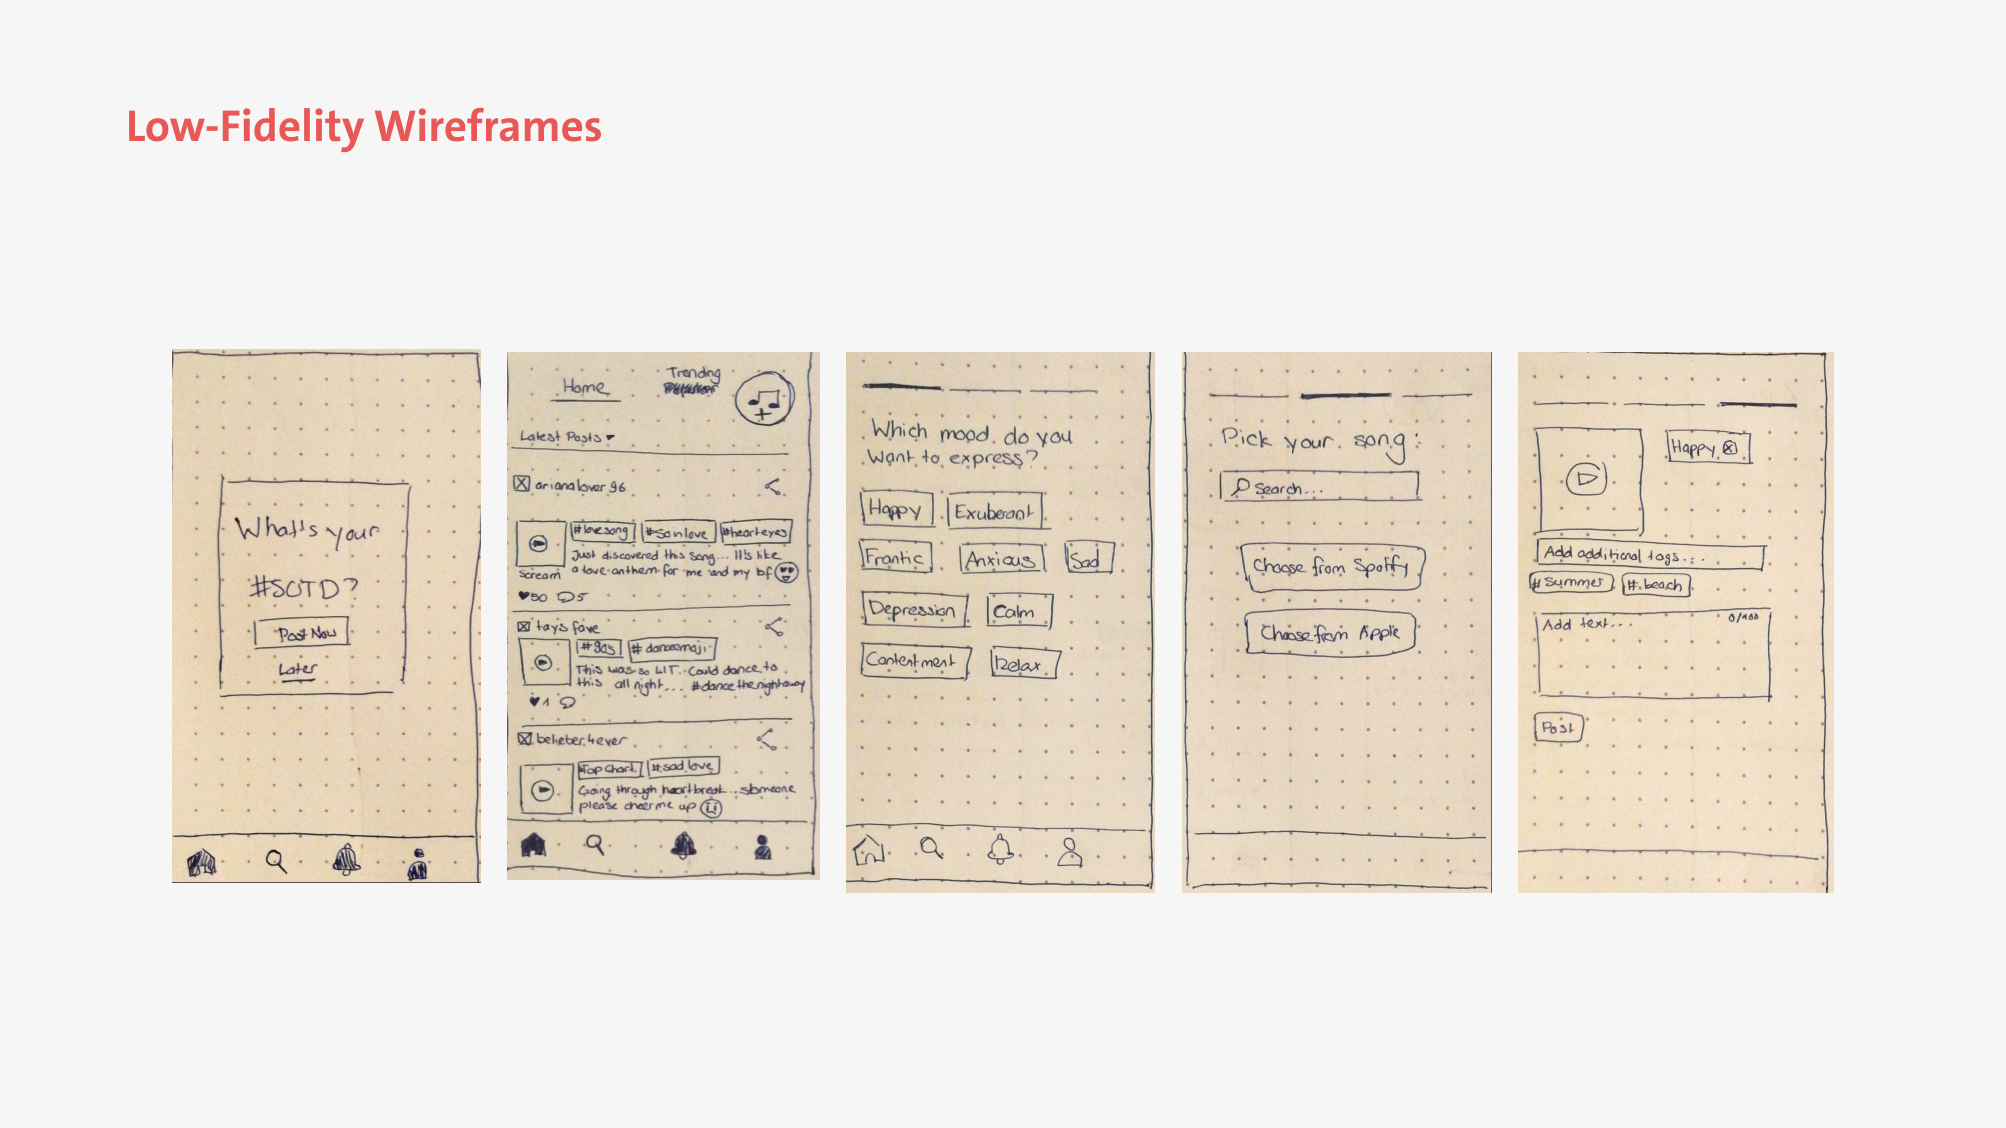 Low-Fidelity Wireframes
What's your
#SOTD?
Post Now
Later
Home
Trending
Latest Posts
arianalover96
#lovesong #Soinlove #hearteyes
Just discovered this song... It's like
a love anthem for me and my bf
Scream
50 5
tays fave
#80s #danceemoji
This was so LIT. Could dance to
this all night... #dancethenightaway
1
belieber4ever
Top Chart #sad love
Going through heartbreak... someone
please cheer me up
Which mood do you
want to express?
Happy Exuberant
Frantic Anxious Sad
Depression Calm
Contentment Relax
Pick your song:
Search...
Choose from Spotify
Choose from Apple
Happy
Add additional tags...
#Summer #beach
Add text... 0/400
Post